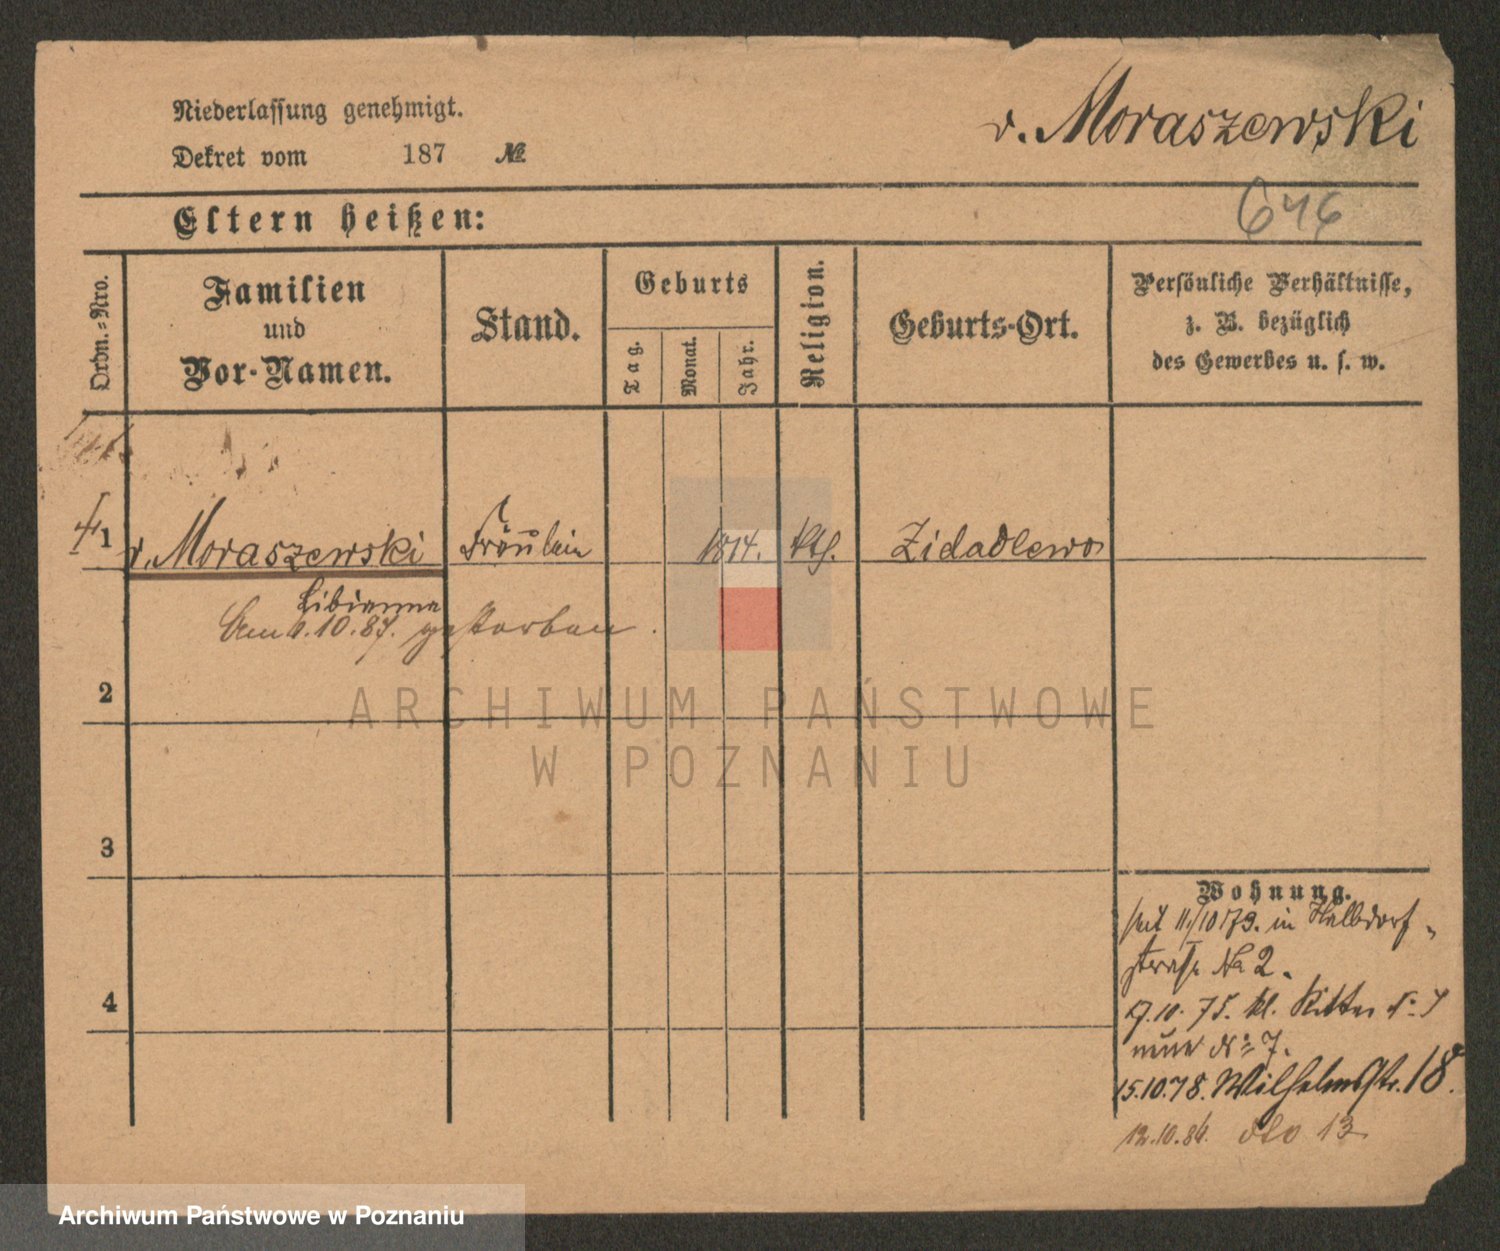 v. Moraszewski
Niederlassung genehmigt.
Dekret vom 187 №
646
Eltern heißen:
Ordn.-Nro.
Familien
und
Vor-Namen.
Stand.
Geburts
Tag.
Monat.
Jahr.
Religion.
Geburts-Ort.
Persönliche Verhältnisse,
z. B. bezüglich
des Gewerbes u. s. w.
1 v. Moraszewski Fräulein 1814. kth. Zidadlewo
Libianna
10.87. gestorben.
2
3
4
Wohnung.
seit 11/10 73. in Halbdorf-
strasse No 2.
10. 75. kl. Ritter
neue No 7.
15.10.78. Wilhelmstr. 18.
12.10.84. dto 13
ARCHIWUM PAŃSTWOWE
W POZNANIU
Archiwum Państwowe w Poznaniu